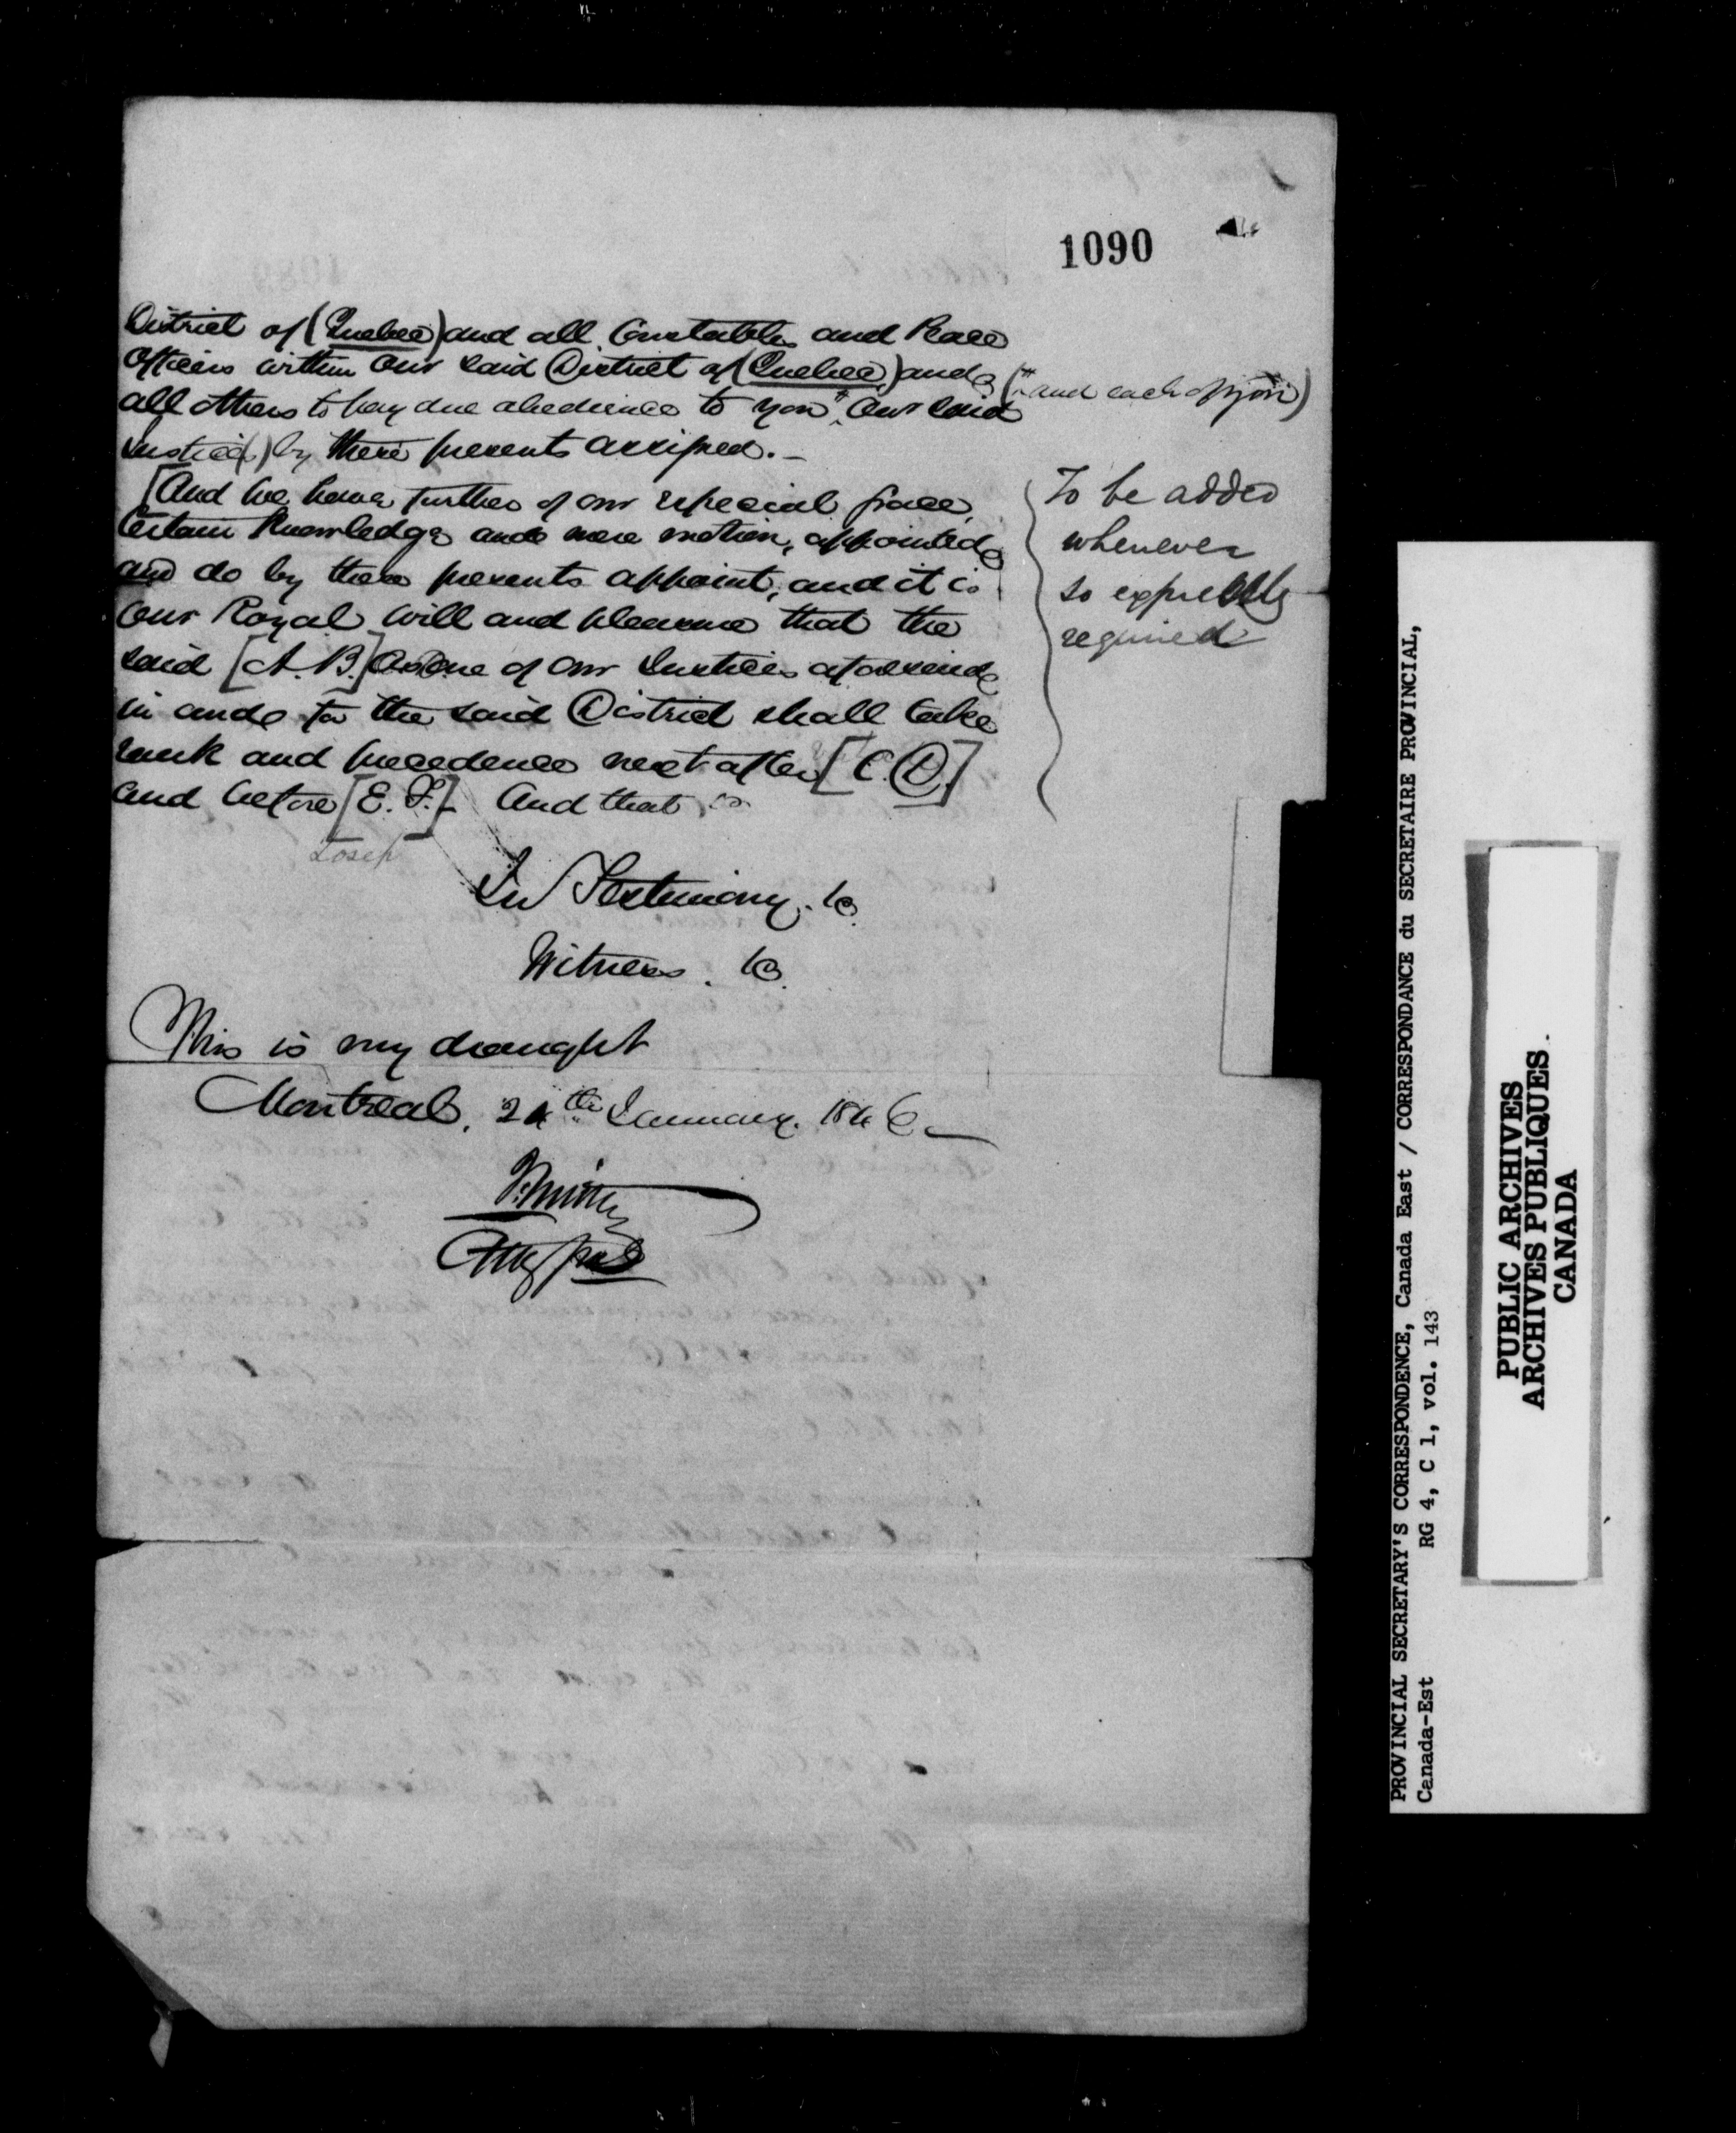 1090
District of (Quebec) and all Constables and Peace
Officers within Our said District of (Quebec,) and
(* and each of you)
all others to pay due obedience to you * Our said
Justice( ) by these presents assigned. —
[And We have further of our especial grace,
Certain Knowledge and mere motion, appointed
and do by these presents appoint, and it is
Our Royal Will and pleasure that the
said [A. B.] as One of Our Justices aforesaid
in and for the said District shall take
rank and precedence next after [C. D.]
and before [E. F.] And that
To be added
whenever
so expressly
required
In Testimony. &c.
Witness. &c.
This is my draught
Montreal, 24th January. 1846 —
J. Smith
Atty Genl
PROVINCIAL SECRETARY'S CORRESPONDENCE, Canada East / CORRESPONDANCE du SECRETAIRE PROVINCIAL,
Canada-Est RG 4, C 1, vol. 143
PUBLIC ARCHIVES
ARCHIVES PUBLIQUES
CANADA